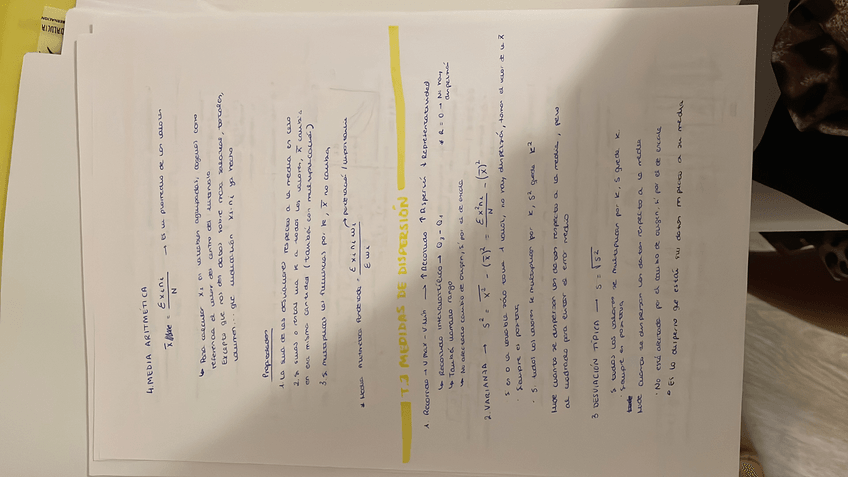 4. MEDIA ARITMETICA
x̄ = Σ xi ni / N → Es un promedio de los valores
↳ Para calcular xi en valores agrupados, cogemos como
referencia el valor del centro del intervalo
Excepto que nos den datos sobre masa salarial, totales,
volumen... que multiplicación xi·ni ya hecho
Propiedades
1. La suma de las desviaciones respecto a la media es cero
2. Si sumas o restas una K a todos los valores, x̄ cambia
en esa misma cantidad (también con multiplicación)
3. Si multiplicas las frecuencias por K, x̄ no cambia
* Media Aritmética Ponderada = Σ xi ni wi / Σ wi → ponderación / importancia
T.2 MEDIDAS DE DISPERSIÓN
1. Recorrido → V MAX - V Min → ↑ Recorrido ↑ Dispersión ↓ Representatividad
↳ Recorrido intercuartílico → Q3 - Q1 * R = 0 → No hay dispersión
↳ También llamado rango
↳ No afectado cambio de origen, sí por el de escala
2. VARIANZA → S² = x̄² - (x̄)² = Σ x² ni / N - (x̄)²
Si es 0 la variable sólo toma 1 valor, no hay dispersión, toman el valor de la x̄
· Siempre es positiva
· Si todos los valores se multiplican por K, S² queda K²
Mide cuanto se dispersan los datos respecto a la media, pero
al cuadrado para evitar el error medio
3. DESVIACIÓN TÍPICA → S = √S²
· Si todos los valores se multiplican por K, S queda K
· Siempre es positiva
Mide cuanto se dispersan los datos respecto a la media
· No está afectada por el cambio de origen, sí por el de escala
* Es lo disperso que están sus datos respecto a su media